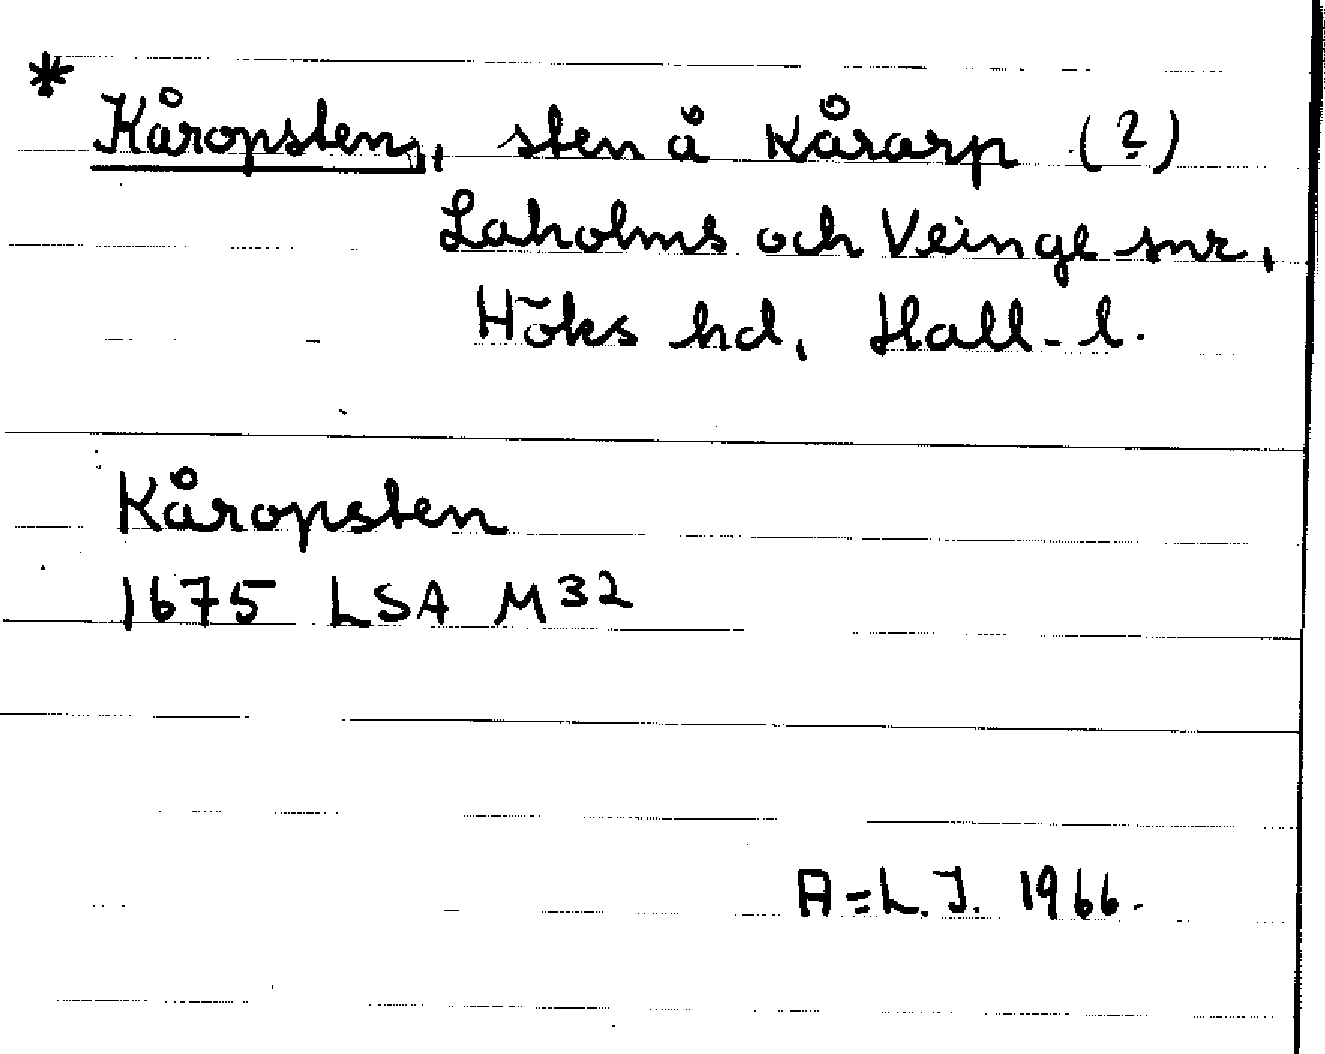 * Kåropsten, sten å Kårarp (?)
Laholms och Veinge snr,
Höks hd, Hall. l.
Kåropsten
1675 LSA M32
A-L. J. 1966.